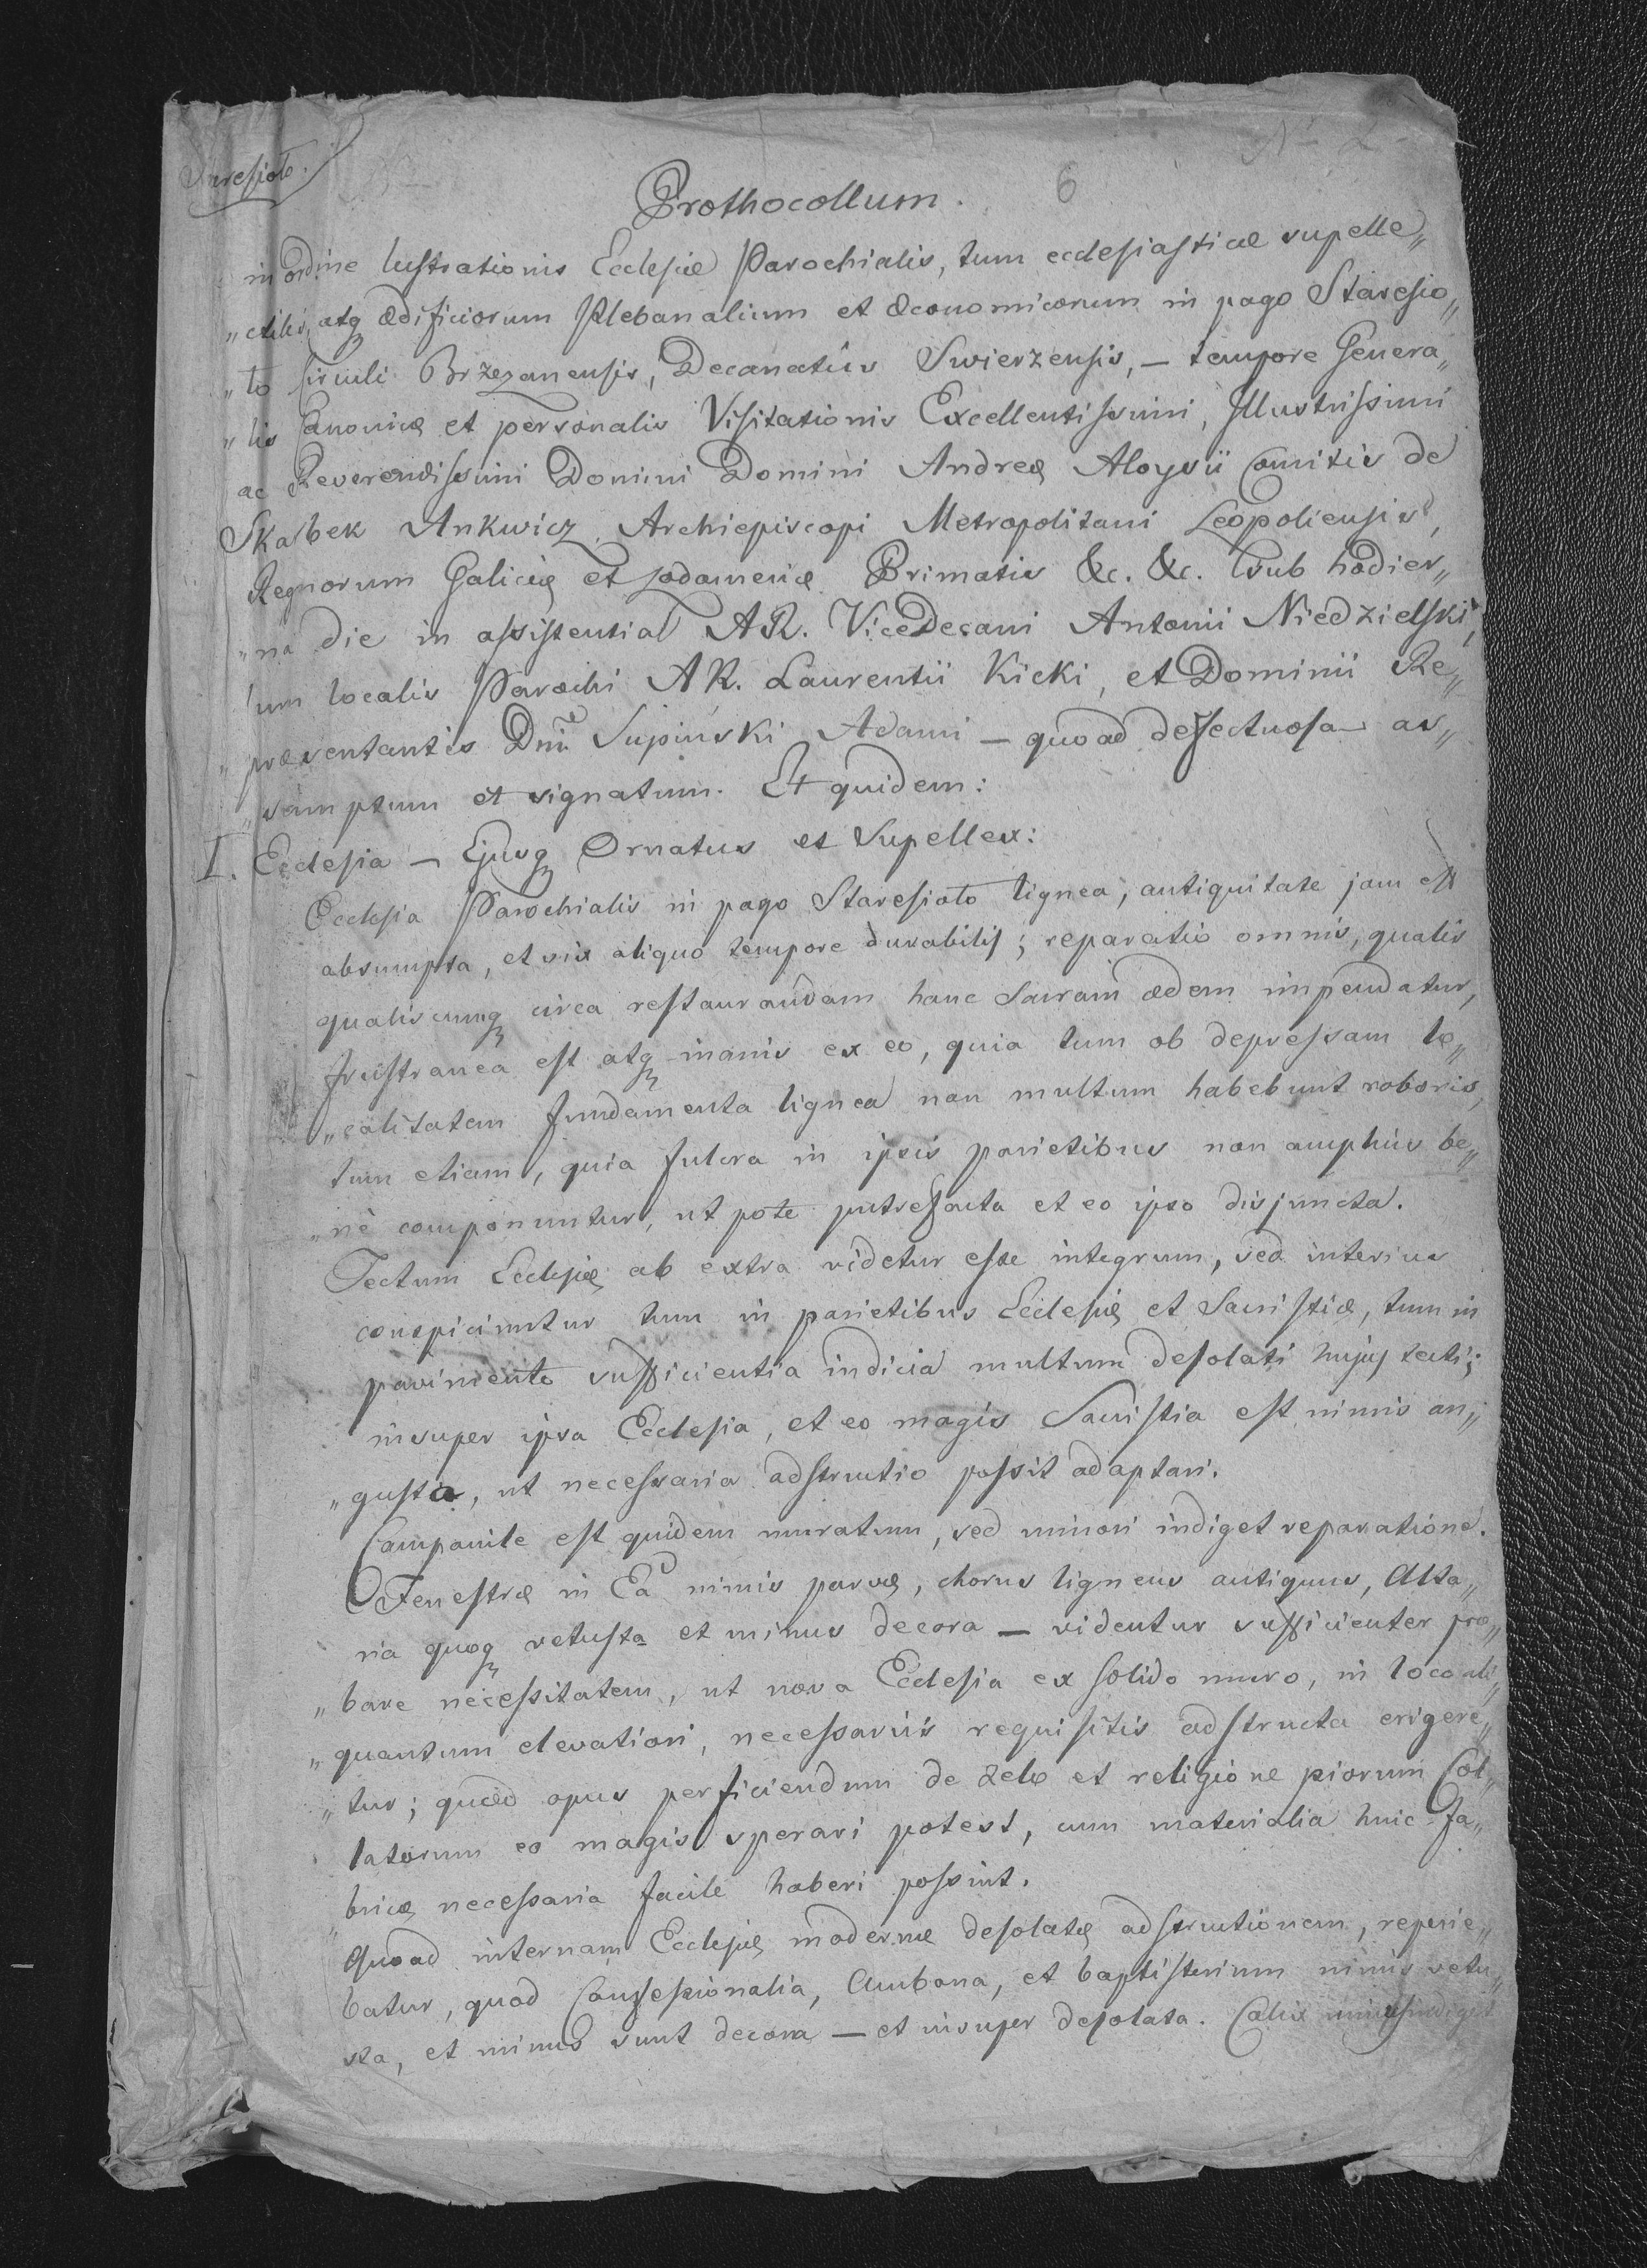 Staresioło.
N 2
6
Prothocollum.
in ordine lustrationis Ecclesiæ Parochialis, tum ecclesiasticæ supelle„
„ctilis, atq ædificiorum Plebanalium et æconomicorum in pago Staresio„
„ło Circuli Brzezanensis, Decanatûs Swierzensis, — tempore Genera„
„lis Canonicæ et personalis Visitationis Excellentissimi, Illustrissimi
ac Reverendissimi Domini Domini Andreæ Aloysii Comitis de
Skarbek Ankwicz Archiepiscopi Metropolitani Leopoliensis,
Regnorum Galiciæ et Lodomeriæ Primatis &c. &c. sub hodier„
„na die in assistentia AR. ViceDecani Antonii Niedzielski,
tum localis Parochi AR. Laurentii Kicki, et Dominii Re„
„præsentantis Dni Supiński Adami — quoad defectuosa as„
„sumptum et signatum. Et quidem:
I. Ecclesia — Ejusq Ornatus et Supellex:
Ecclesia Parochialis in pago Staresioło lignea, antiquitate jam est
absumpta, et vix aliquo tempore durabilis; reparatio omnis, qualis
qualiscunq circa restaurandam hanc Sacram ædem impendatur,
frustranea est atq inanis ex eo, quia tum ob depressam lo„
„calitatem fundamenta lignea non multum habebunt roboris,
tum etiam, quia fulcra in ipsis parietibus non amplius be„
„nè componuntur, ut pote putrefacta et eo ipso disjuncta.
Tectum Ecclesiæ ab extra videtur esse integrum, sed interius
conspiciuntur tum in parietibus Ecclesiæ et Sacristiæ, tum in
pavimento sufficientia indicia multum desolati hujus tecti;
insuper ipsa Ecclesia, et eo magis Sacristia est nimis an„
„gusta, ut necessaria adstructio possit adaptari.
Campanile est quidem muratum, sed minori indiget reparatione.
Fenestræ in Ea nimis parvæ, chorus ligneus antiquus, Alta„
ria quoq vetusta et minus decora — videntur sufficienter pro„
„bare necessitatem, ut nova Ecclesia ex solido muro, in loco ali„
„quantum elevatiori, necessariis requisitis adstructa erigere„
„tur; quod opus perficiendum de zelo et religione piorum Col„
latorum eo magis sperari potest, cum materialia huic fa„
„bricæ necessaria facile haberi possint.
Quoad internam Ecclesiæ modernæ desolatæ adstructionem, reperie„
batur, quod Confessionalia, Ambona, et baptisterium nimis vetu„
sta, et minus sunt decora — et insuper desolata. Calix unus indiget